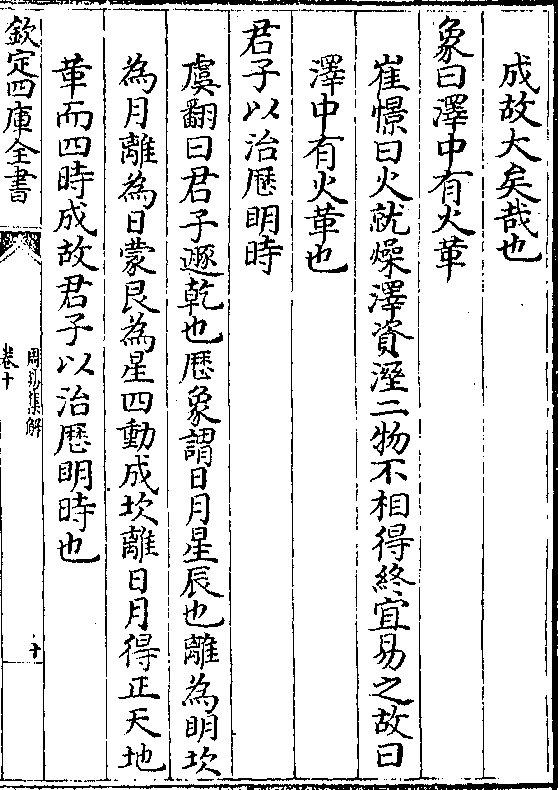 成故大矣哉也
象曰澤中有火革
崔憬曰火就燥澤資溼二物不相得終宜易之故曰
澤中有火革也
君子以治厯明時
虞翻曰君子遯乾也厯象謂日月星辰也離為明坎
為月離為日蒙艮為星四動成坎離日月得正天地
革而四時成故君子以治厯明時也
欽定四庫全書
周易集解
卷十
十